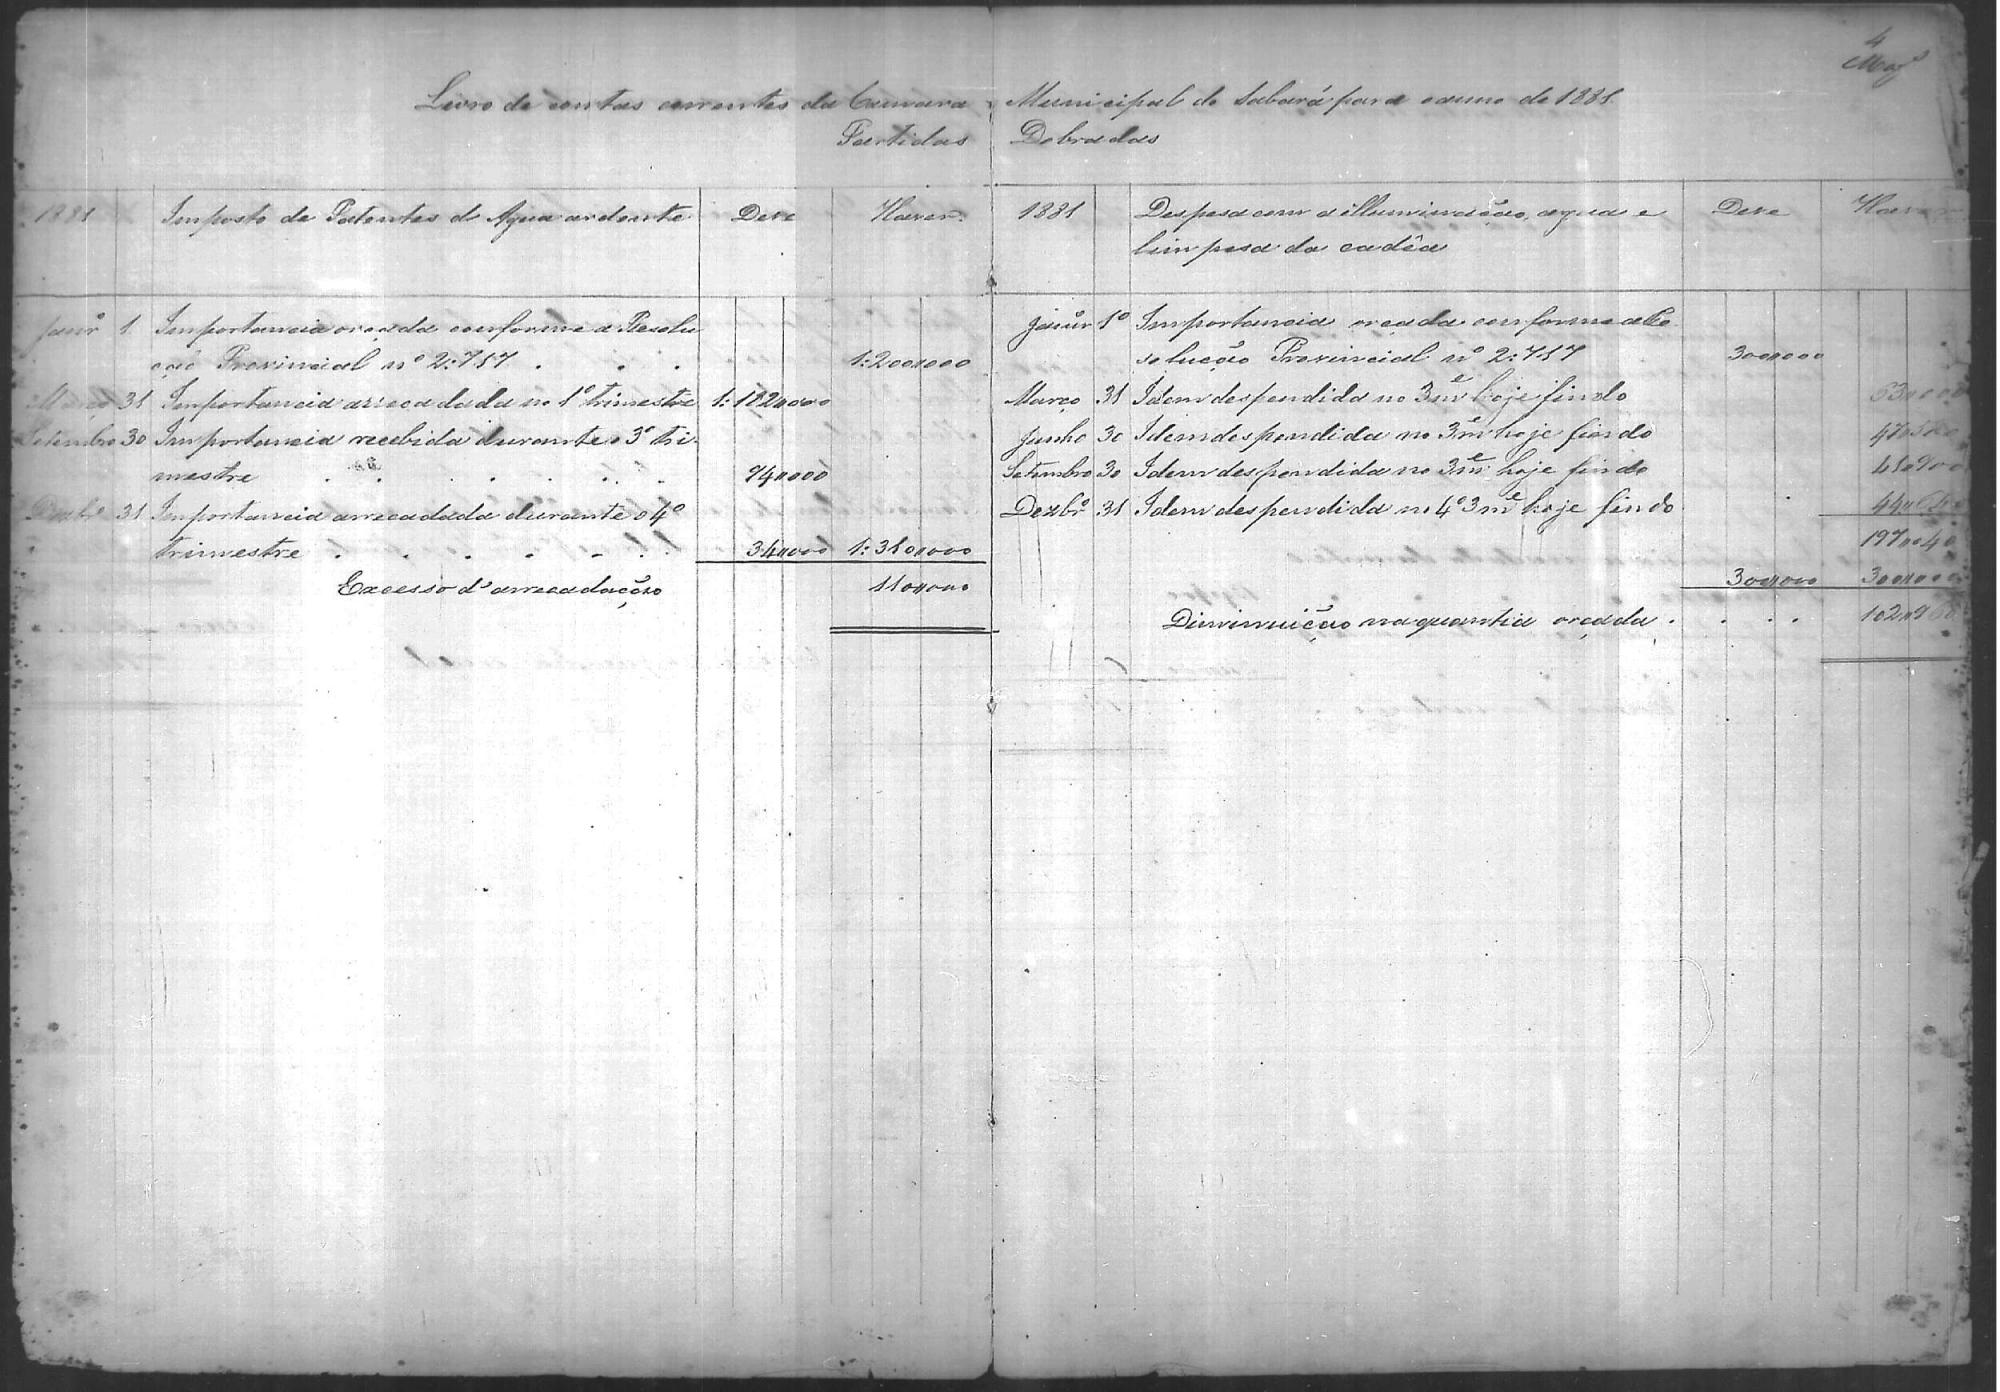 4
Livro de contas correntes da Camara Municipal de Sabará para o anno de 1881.
Partidas Dobradas
1881 Imposto de Patentes d'Agua ardente Deve Haver
Janrº 1 Importancia orçada conforme a Resolu
ção Provincial nº 2:717 . . . 1:200"000
Março 31 Importancia arrecadada no 1º trimestre 1:182"000
Setembro 30 Importancia recebida durante o 3º tri-
mestre . . . . . . . 94"000
Dezbrº 31 Importancia arrecadada durante o 4º
trimestre . . . . . . . 34"000 1:310"000
Excesso d'arrecadação 110"000
1881 Despesa com a illuminação, agua e Deve Haver
limpesa da cadêa
Janrº 1º Importancia orçada conforme a Re
solução Provincial nº 2:717 300"000
Março 31 Idem despendida no 3mᵉ hoje findo 63"000
Junho 30 Idem despendida no 3mᵉ hoje findo 47"500
Setembro 30 Idem despendida no 3mᵉ hoje findo 41"900
Dezbrº 31 Idem despendida no 4º 3mᵉ hoje findo 44"640
197"040
300"000 300"000
Diminuição na quantia orçada . . . . 102"960